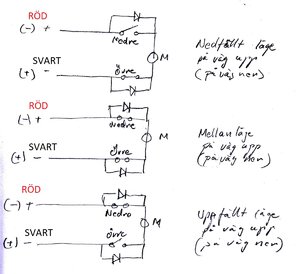 RÖD
(-) +
Nedre
M
SVART
(+) -
Övre
Nedfällt läge
på väg upp
(på väg ner)
RÖD
(-) +
Nedre
M
SVART
(+) -
Övre
Mellanläge
på väg upp
(på väg ner)
RÖD
(-) +
Nedre
M
SVART
(+) -
Övre
Uppfällt läge
på väg upp
(på väg ner)